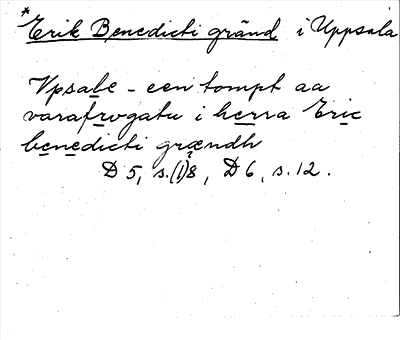 *Erik Benedicti gränd i Uppsala
Vpsale - een tompt aa
varafrvgatu i herra Eric
benedicti grændh
D 5, s.(1)8, D 6, s.12.